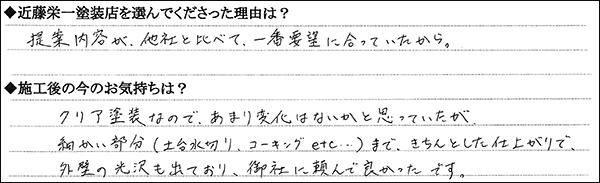 ◆近藤栄一塗装店を選んでくださった理由は？
提案内容が、他社と比べて、一番要望に合っていたから。
◆施工後の今のお気持ちは？
クリア塗装なので、あまり変化はないかと思っていたが、
細かい部分（土台水切り、コーキングetc…）まで、きちんとした仕上がりで、
外壁の光沢も出ており、御社に頼んで良かったです。